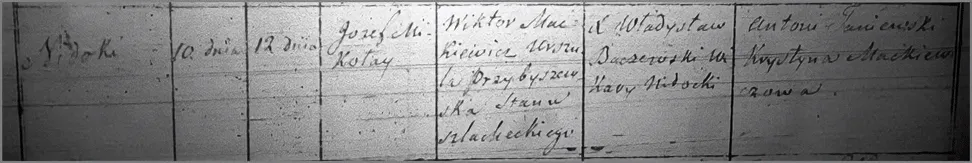 Widoki
10 dnia
12 dnia
Jozef Mi-
kołay
Wiktor Mac-
kiewicz Urszu
la Przybyszew
ska Stanu
szlacheckiego
X Władysław
Baczewski Wi
kary Widocki
Antoni Janiewski
Krystyna Mackiew
czowa.